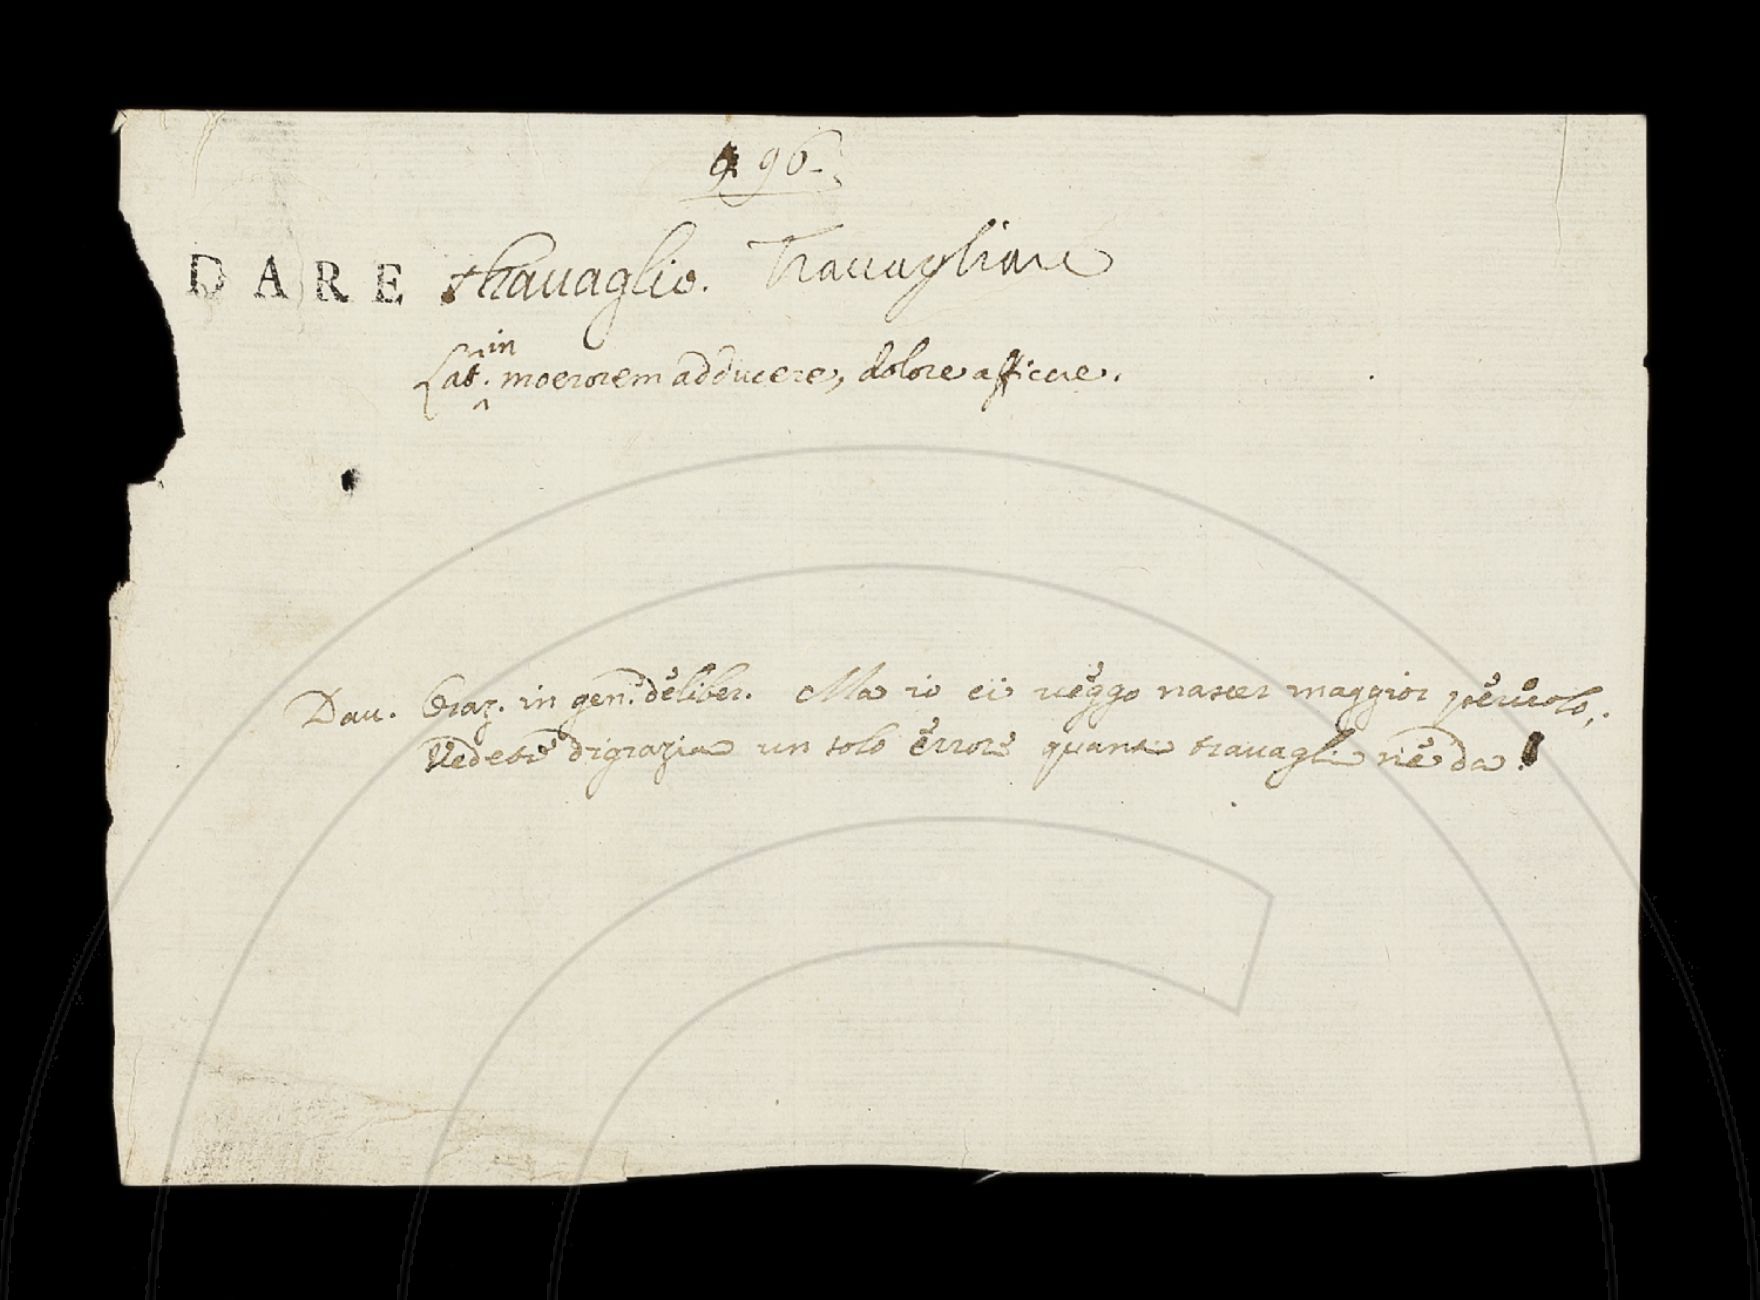 96.
DARE travaglio. Travagliare
in
Lat. moerorem adducere, dolore afficere.
Dav. Oraz. in gen. deliber. Ma io ci veggo nascer maggior pericolo,
Vedete digrazia un solo errore quanti travagli ne da!